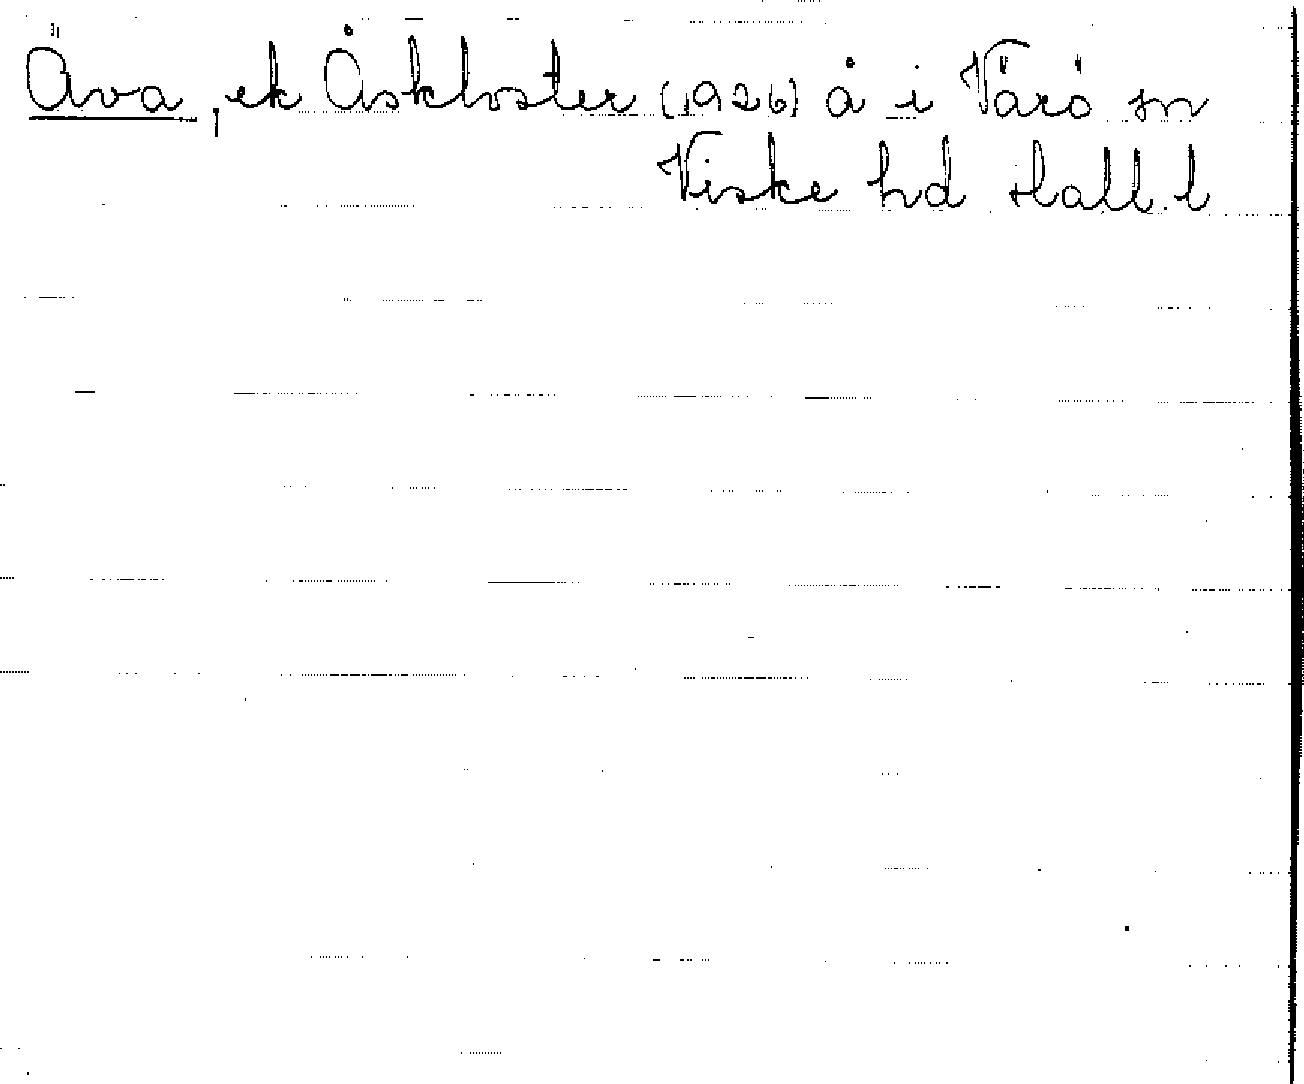 Äva, ek Åskloster (1926) å i Värö sn
Viske hd Hall. l